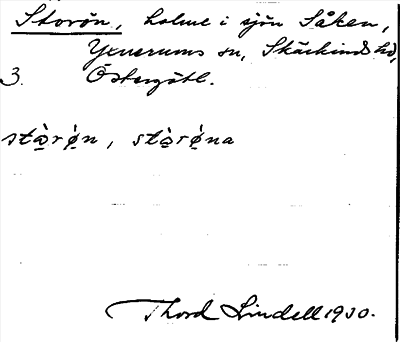 Storön, holme i sjön Såken,
Yxnerums sn, Skärkinds hd,
3. Östergötl.
stɷ̀rǿn, stɷ̀rǿna
Thord Lindell 1930.